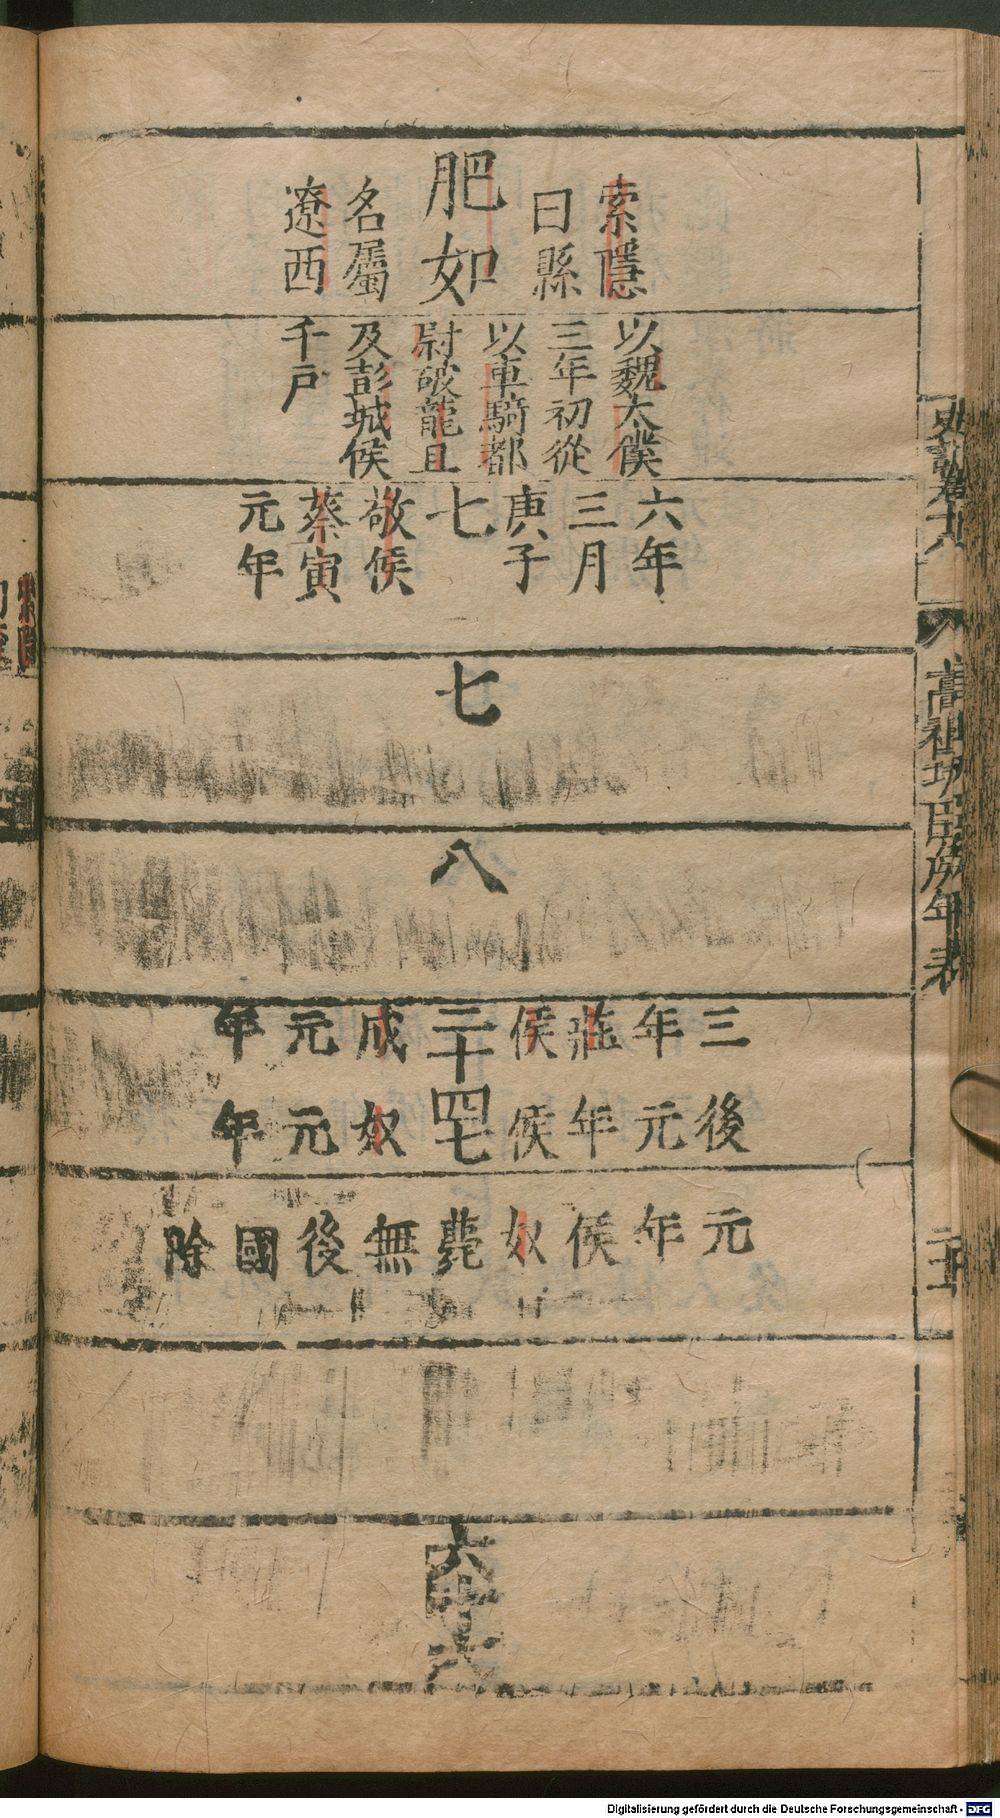 史記卷十八
高祖功臣侯年表
索隱
曰縣
肥如
名屬
遼西
以魏太僕
三年初從
以車騎都
尉破龍且
及彭城侯
千戶
六年
三月
庚子
七
敬侯
蔡寅
元年
七
八
三年莊侯
二十四七
成元年
後元年侯
奴元年
元年侯奴薨無後國除
Digitalisierung gefördert durch die Deutsche Forschungsgemeinschaft - DFG